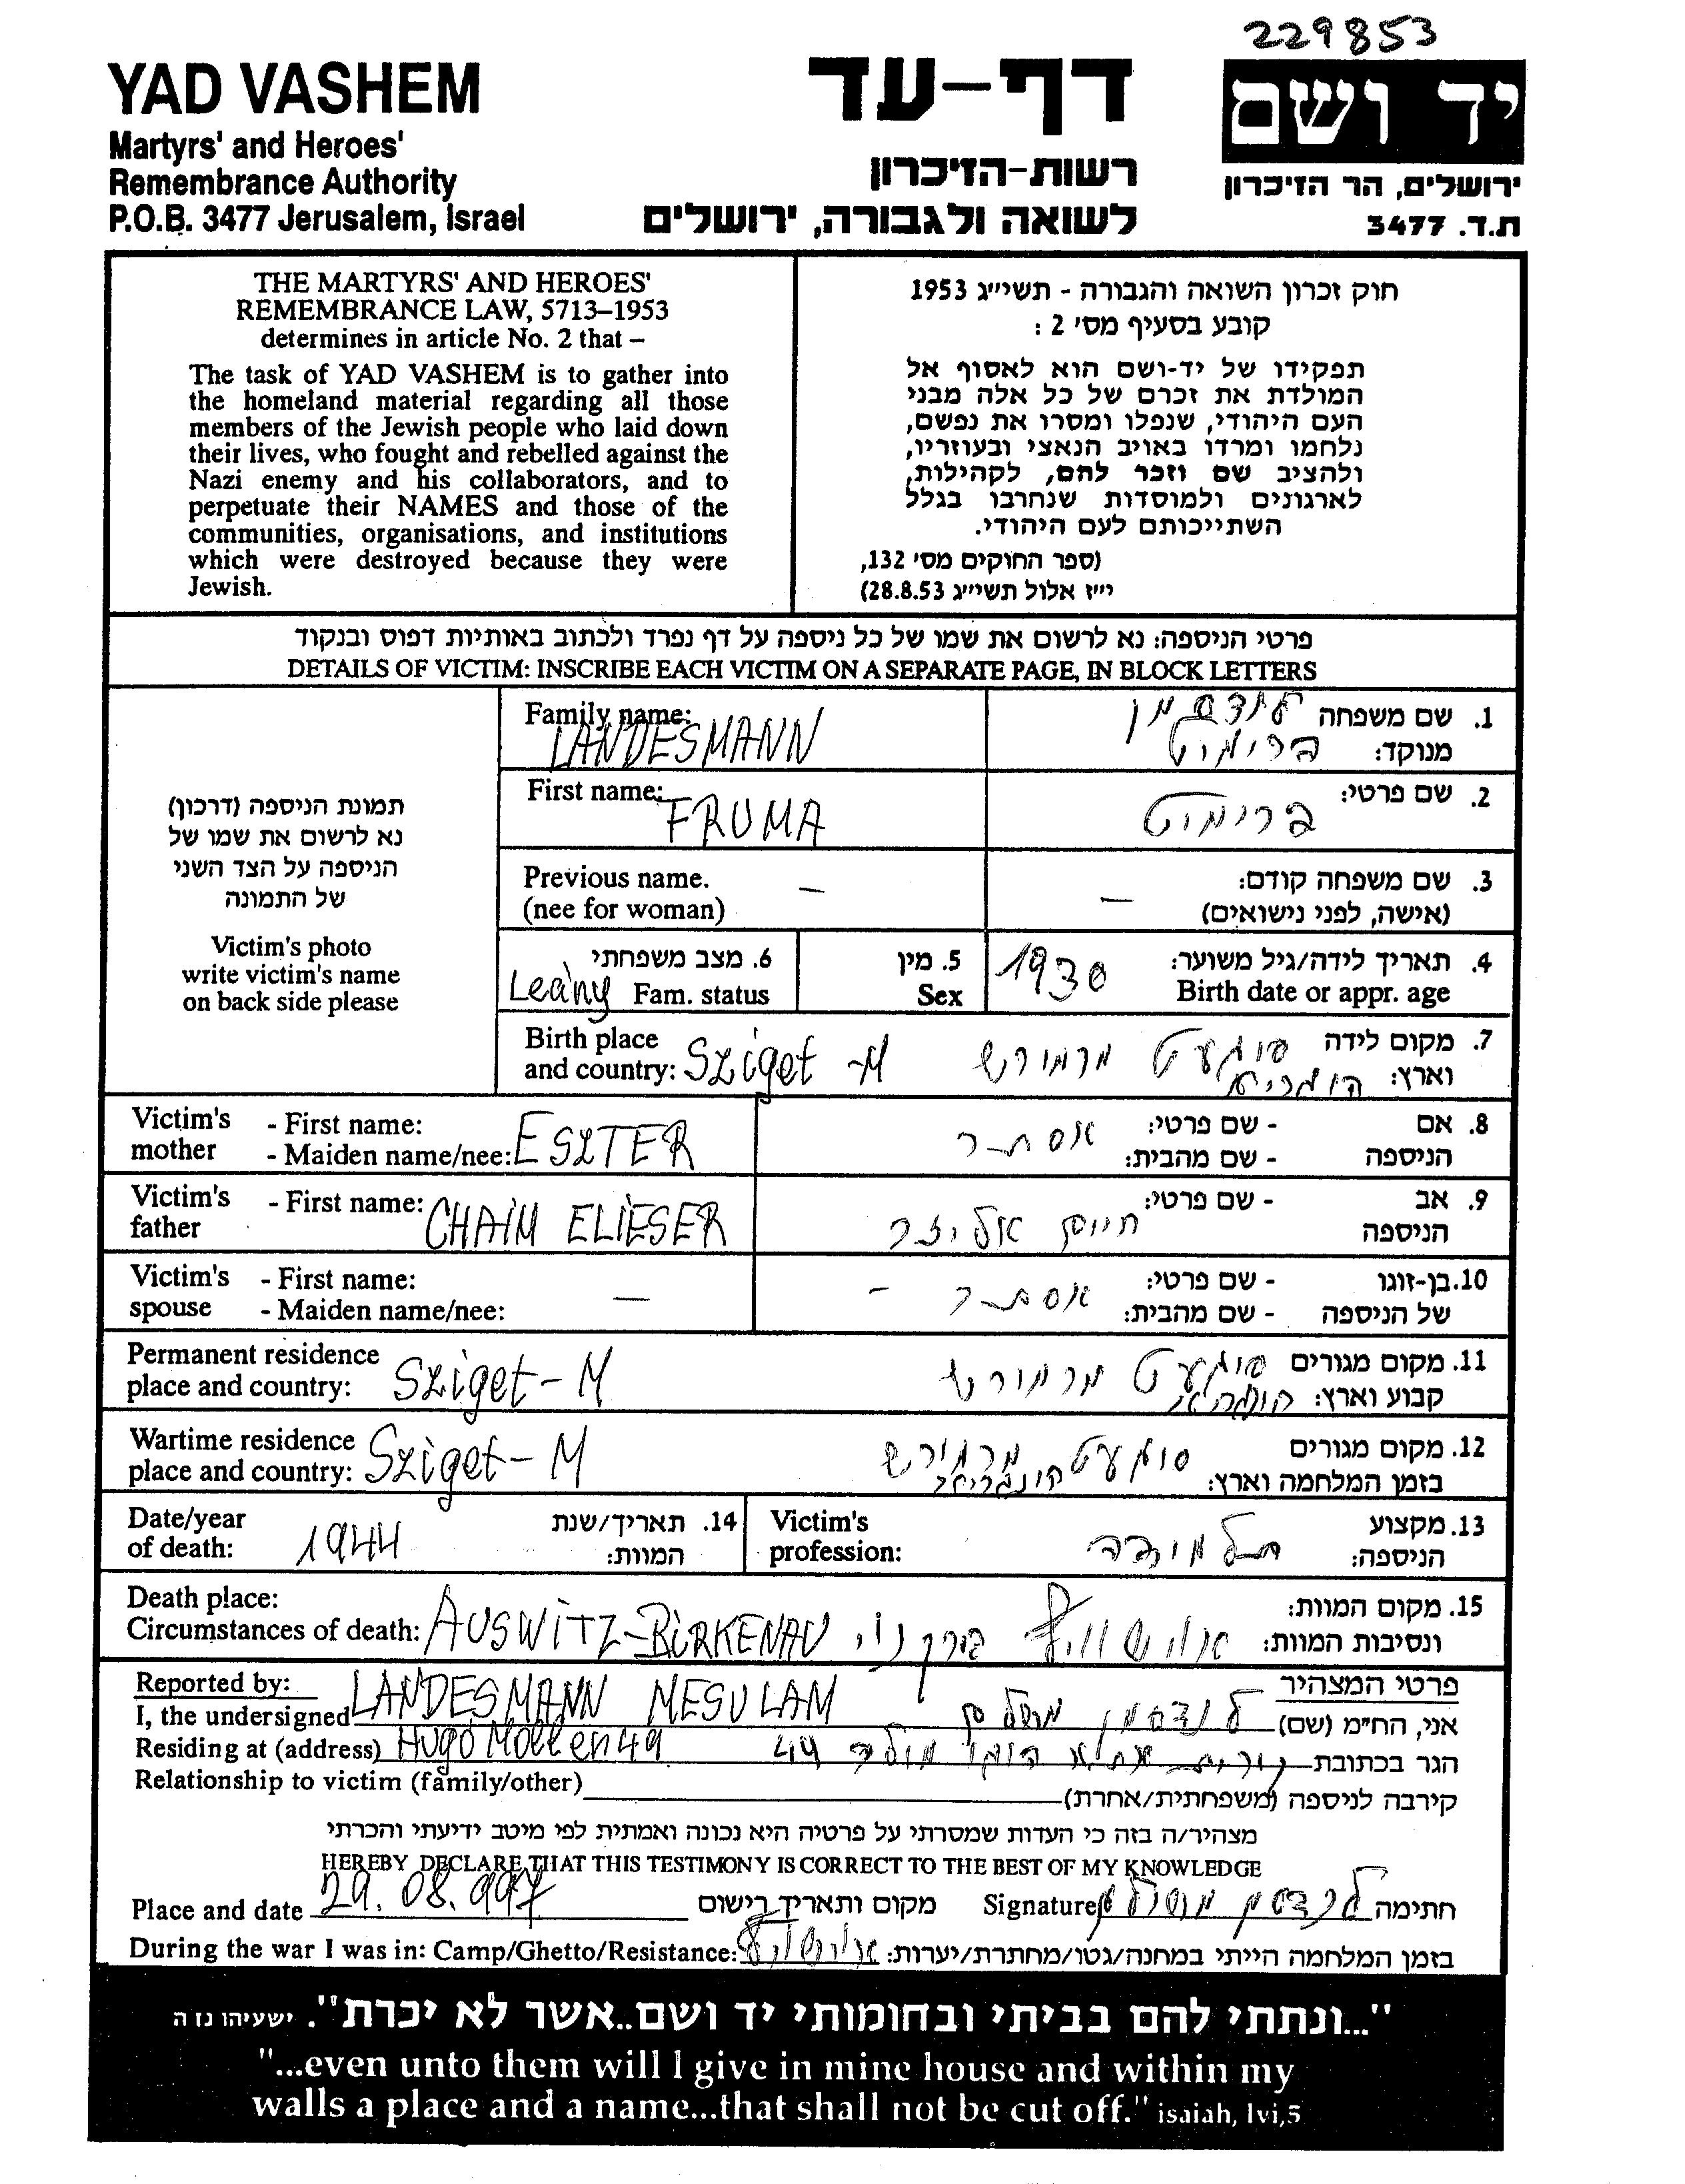 229853
YAD VASHEM
Martyrs' and Heroes'
Remembrance Authority
P.O.B. 3477 Jerusalem, Israel
דף-עד
רשות-הזיכרון
לשואה ולגבורה, ירושלים
יד ושם
ירושלים, הר הזיכרון
ת.ד. 3477
THE MARTYRS' AND HEROES'
REMEMBRANCE LAW, 5713–1953
determines in article No. 2 that –
The task of YAD VASHEM is to gather into
the homeland material regarding all those
members of the Jewish people who laid down
their lives, who fought and rebelled against the
Nazi enemy and his collaborators, and to
perpetuate their NAMES and those of the
communities, organisations, and institutions
which were destroyed because they were
Jewish.
חוק זכרון השואה והגבורה - תשי״ג 1953
קובע בסעיף מס׳ 2 :
תפקידו של יד-ושם הוא לאסוף אל
המולדת את זכרם של כל אלה מבני
העם היהודי, שנפלו ומסרו את נפשם,
נלחמו ומרדו באויב הנאצי ובעוזריו,
ולהציב שם וזכר להם, לקהילות,
לארגונים ולמוסדות שנחרבו בגלל
השתייכותם לעם היהודי.
(ספר החוקים מס׳ 132,
י״ז אלול תשי״ג 28.8.53)
פרטי הניספה: נא לרשום את שמו של כל ניספה על דף נפרד ולכתוב באותיות דפוס ובנקוד
DETAILS OF VICTIM: INSCRIBE EACH VICTIM ON A SEPARATE PAGE, IN BLOCK LETTERS
תמונת הניספה (דרכון)
נא לרשום את שמו של
הניספה על הצד השני
של התמונה
Victim's photo
write victim's name
on back side please
Family name: LANDESMANN
1. שם משפחה לנדסמן
מנוקד: פרימוט
First name: FRUMA
2. שם פרטי: פרימוט
Previous name. –
(nee for woman)
3. שם משפחה קודם: –
(אישה, לפני נישואים)
6. מצב משפחתי
Leány Fam. status
5. מין
Sex
4. תאריך לידה/גיל משוער:
Birth date or appr. age 1930
Birth place
and country: Sziget -M
7. מקום לידה סיגעט מרמורש
וארץ: הונגריה
Victim's - First name:
mother - Maiden name/nee: ESZTER
8. אם - שם פרטי: אסתר
הניספה - שם מהבית:
Victim's - First name: CHAIM ELIESER
father
9. אב - שם פרטי: חיים אליזר
הניספה
Victim's - First name: –
spouse - Maiden name/nee:
10. בן-זוגו - שם פרטי: אסתר -
של הניספה - שם מהבית:
Permanent residence
place and country: Sziget - M
11. מקום מגורים סיגעט מרמורש
קבוע וארץ:
Wartime residence
place and country: Sziget - M
12. מקום מגורים סיגעט מרמורש
בזמן המלחמה וארץ:
Date/year
of death: 1944
14. תאריך/שנת
המוות:
Victim's
profession:
13. מקצוע
הניספה: תלמידה
Death place:
Circumstances of death: AUSWITZ-BIRKENAU
15. מקום המוות:
ונסיבות המוות: אוישוויץ
Reported by:
I, the undersigned LANDESMANN MESULAM
Residing at (address) Hugo Mollen 49
Relationship to victim (family/other)
פרטי המצהיר
אני, הח״מ (שם) לנדסמן משולם
הגר בכתובת הוגו מולר 49
קירבה לניספה (משפחתית/אחרת)
מצהיר/ה בזה כי העדות שמסרתי על פרטיה היא נכונה ואמתית לפי מיטב ידיעתי והכרתי
HEREBY DECLARE THAT THIS TESTIMONY IS CORRECT TO THE BEST OF MY KNOWLEDGE
Place and date 29. 08. 997 מקום ותאריך רישום
Signature לנדסמן משולם חתימה
During the war I was in: Camp/Ghetto/Resistance:
בזמן המלחמה הייתי במחנה/גטו/מחתרת/יערות: אוישוויץ
"...ונתתי להם בביתי ובחומותי יד ושם..אשר לא יכרת". ישעיהו נו ה
"...even unto them will I give in mine house and within my
walls a place and a name...that shall not be cut off." isaiah, lvi,5